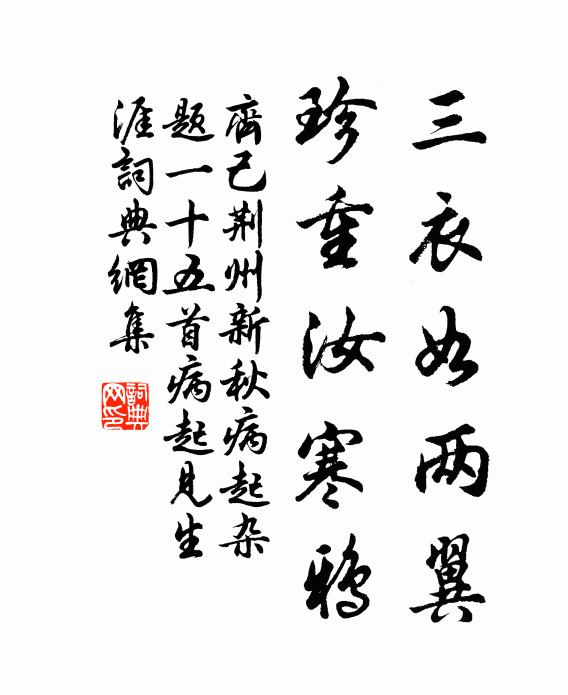 三衣如两翼
珍重汝寒鸦
齊己荆州新秋病起杂
题一十五首病起見生
涯詞典網集
詞典
网印